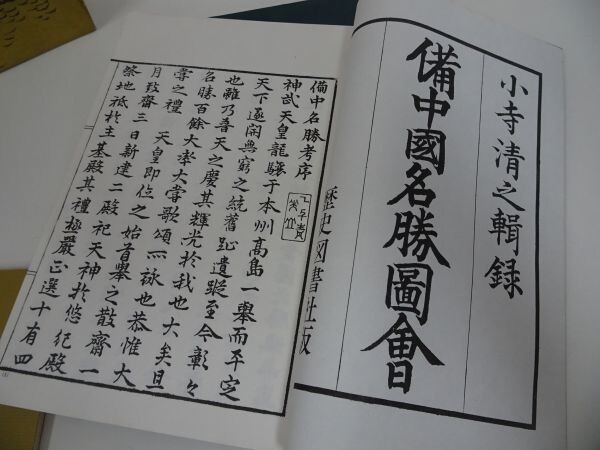 小寺清之輯録
備中國名勝圖會
歴史図書社版
備中名勝考序
神武天皇龍驤于本州高島一舉而平定
天下遂開無窮之統舊趾遺蹤至今彰々
也雖乃普天之慶其輝光於我也大矣且
名勝百餘大率大嘗歌頌所詠也恭惟大
嘗之禮 天皇即位之始首舉之散齋一
月致齋三日新建二殿祀天神於悠紀殿
祭地祇於主基殿其禮極嚴正選十有四